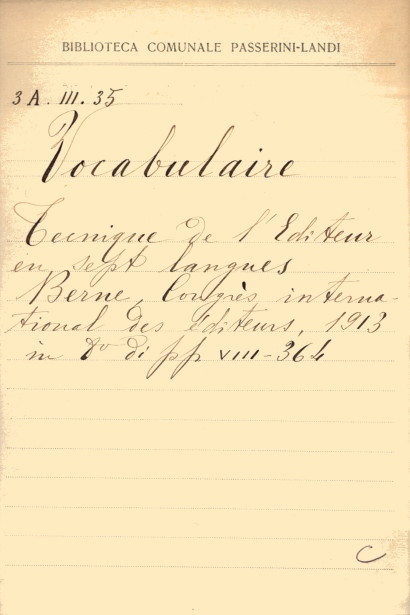 BIBLIOTECA COMUNALE PASSERINI-LANDI
3 A. III. 35
Vocabulaire
Tecnique de l'Editeur
en sept langues
Berne, Congrès interna-
tional des Editeurs, 1913
in 8º di pp VIII-364
C